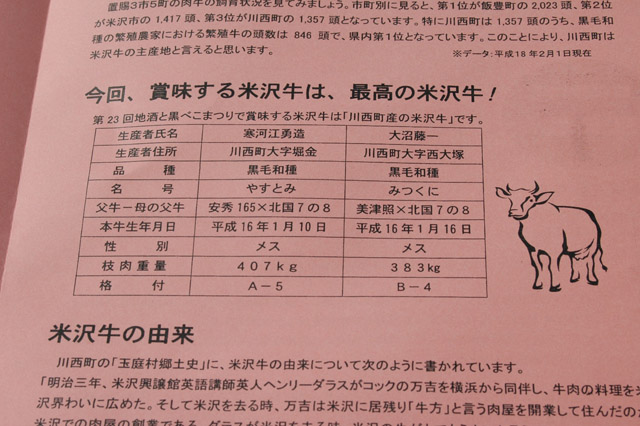 置賜3市5町の肉牛の飼育状況を見てみましょう。市町別に見ると、第1位が飯豊町の 2,023 頭、第2位
が米沢市の 1,417 頭、第3位が川西町の 1,357 頭となっています。特に川西町は 1,357 頭のうち、黒毛和
種の繁殖農家における繁殖牛の頭数は 846 頭で、県内第1位となっています。このことにより、川西町は
米沢牛の主産地と言えると思います。
※データ:平成18年2月1日現在
今回、賞味する米沢牛は、最高の米沢牛！
第 23 回地酒と黒べこまつりで賞味する米沢牛は「川西町産の米沢牛」です。
生産者氏名 寒河江勇造 大沼藤一
生産者住所 川西町大字堀金 川西町大字西大塚
品種 黒毛和種 黒毛和種
名号 やすとみ みつくに
父牛－母の父牛 安秀 165×北国７の８ 美津照×北国７の８
本牛生年月日 平成 16 年 1 月 10 日 平成 16 年 1 月 16 日
性別 メス メス
枝肉重量 ４０７ｋｇ ３８３kg
格付 Ａ－５ Ｂ－４
米沢牛の由来
川西町の「玉庭村郷土史」に、米沢牛の由来について次のように書かれています。
「明治三年、米沢興譲館英語講師英人ヘンリーダラスがコックの万吉を横浜から同伴し、牛肉の料理を米
沢界わいに広めた。そして米沢を去る時、万吉は米沢に居残り「牛方」と言う肉屋を開業して住んだのが
米沢での肉屋の創業である。ダラスが米沢を去る時、米沢の牛が